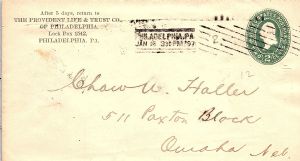 After 5 days, return to
THE PROVIDENT LIFE & TRUST CO.,
OF PHILADELPHIA,
Lock Box 1542,
PHILADELPHIA, PA.
PHILADELPHIA, PA.
JAN 18 3 PM '97
2
12
Chaw W. Haller
511 Paxton Block
Omaha Neb.